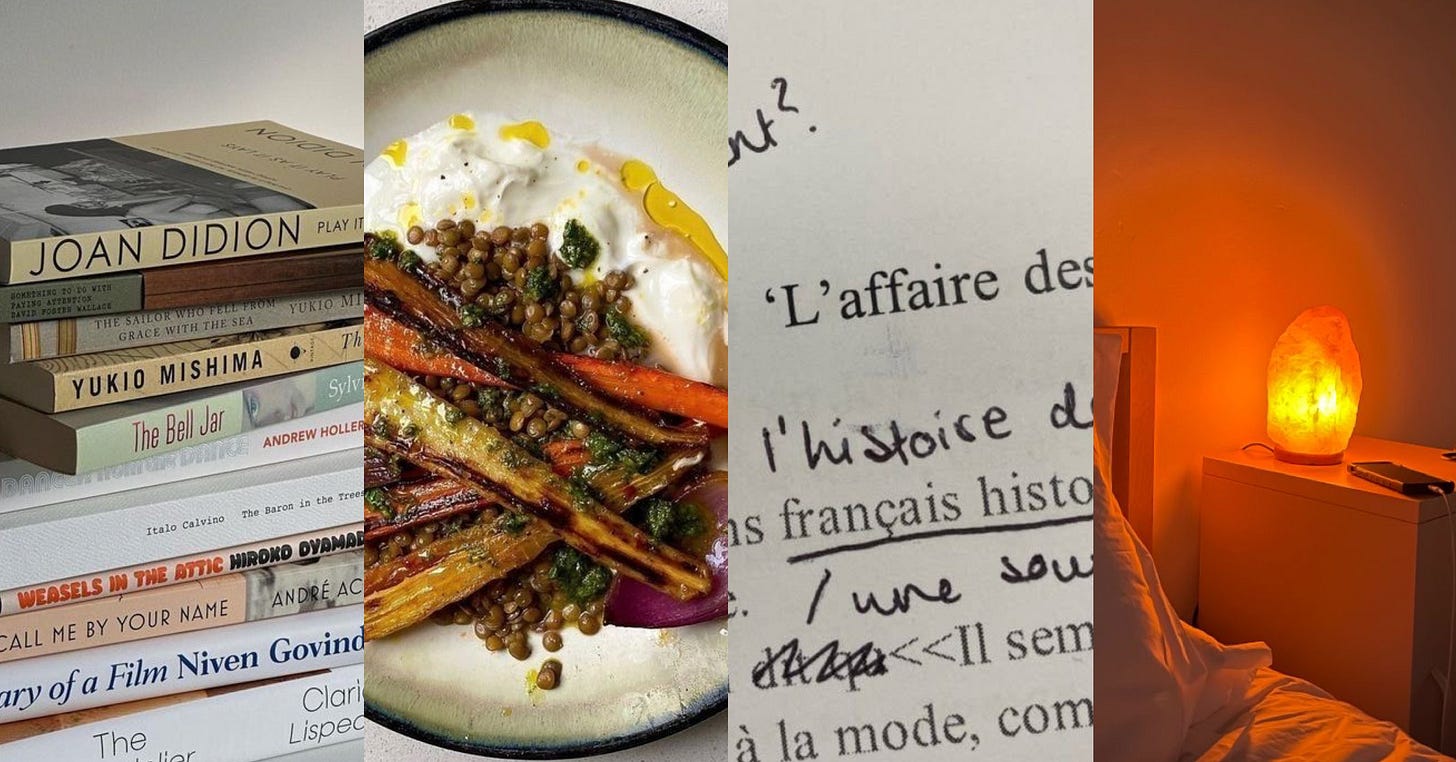 NOIDION
PLAY IT AS IT LAYS
JOAN DIDION PLAY IT
SOMETHING TO DO WITH
PAYING ATTENTION
DAVID FOSTER WALLACE
THE SAILOR WHO FELL FROM
GRACE WITH THE SEA
YUKIO MI
YUKIO MISHIMA Th
VINTAGE
The Bell Jar Sylvi
DANCER FROM THE DANCE ANDREW HOLLER
Italo Calvino The Baron in the Trees
WEASELS IN THE ATTIC HIROKO OYAMAD
CALL ME BY YOUR NAME ANDRÉ AC
ary of a Film Niven Govind
The
Clari
Lispec
elier
nt?
‘L’affaire des
l'histoire de
ns français histo
/ une sou
<<Il sem
à la mode, com